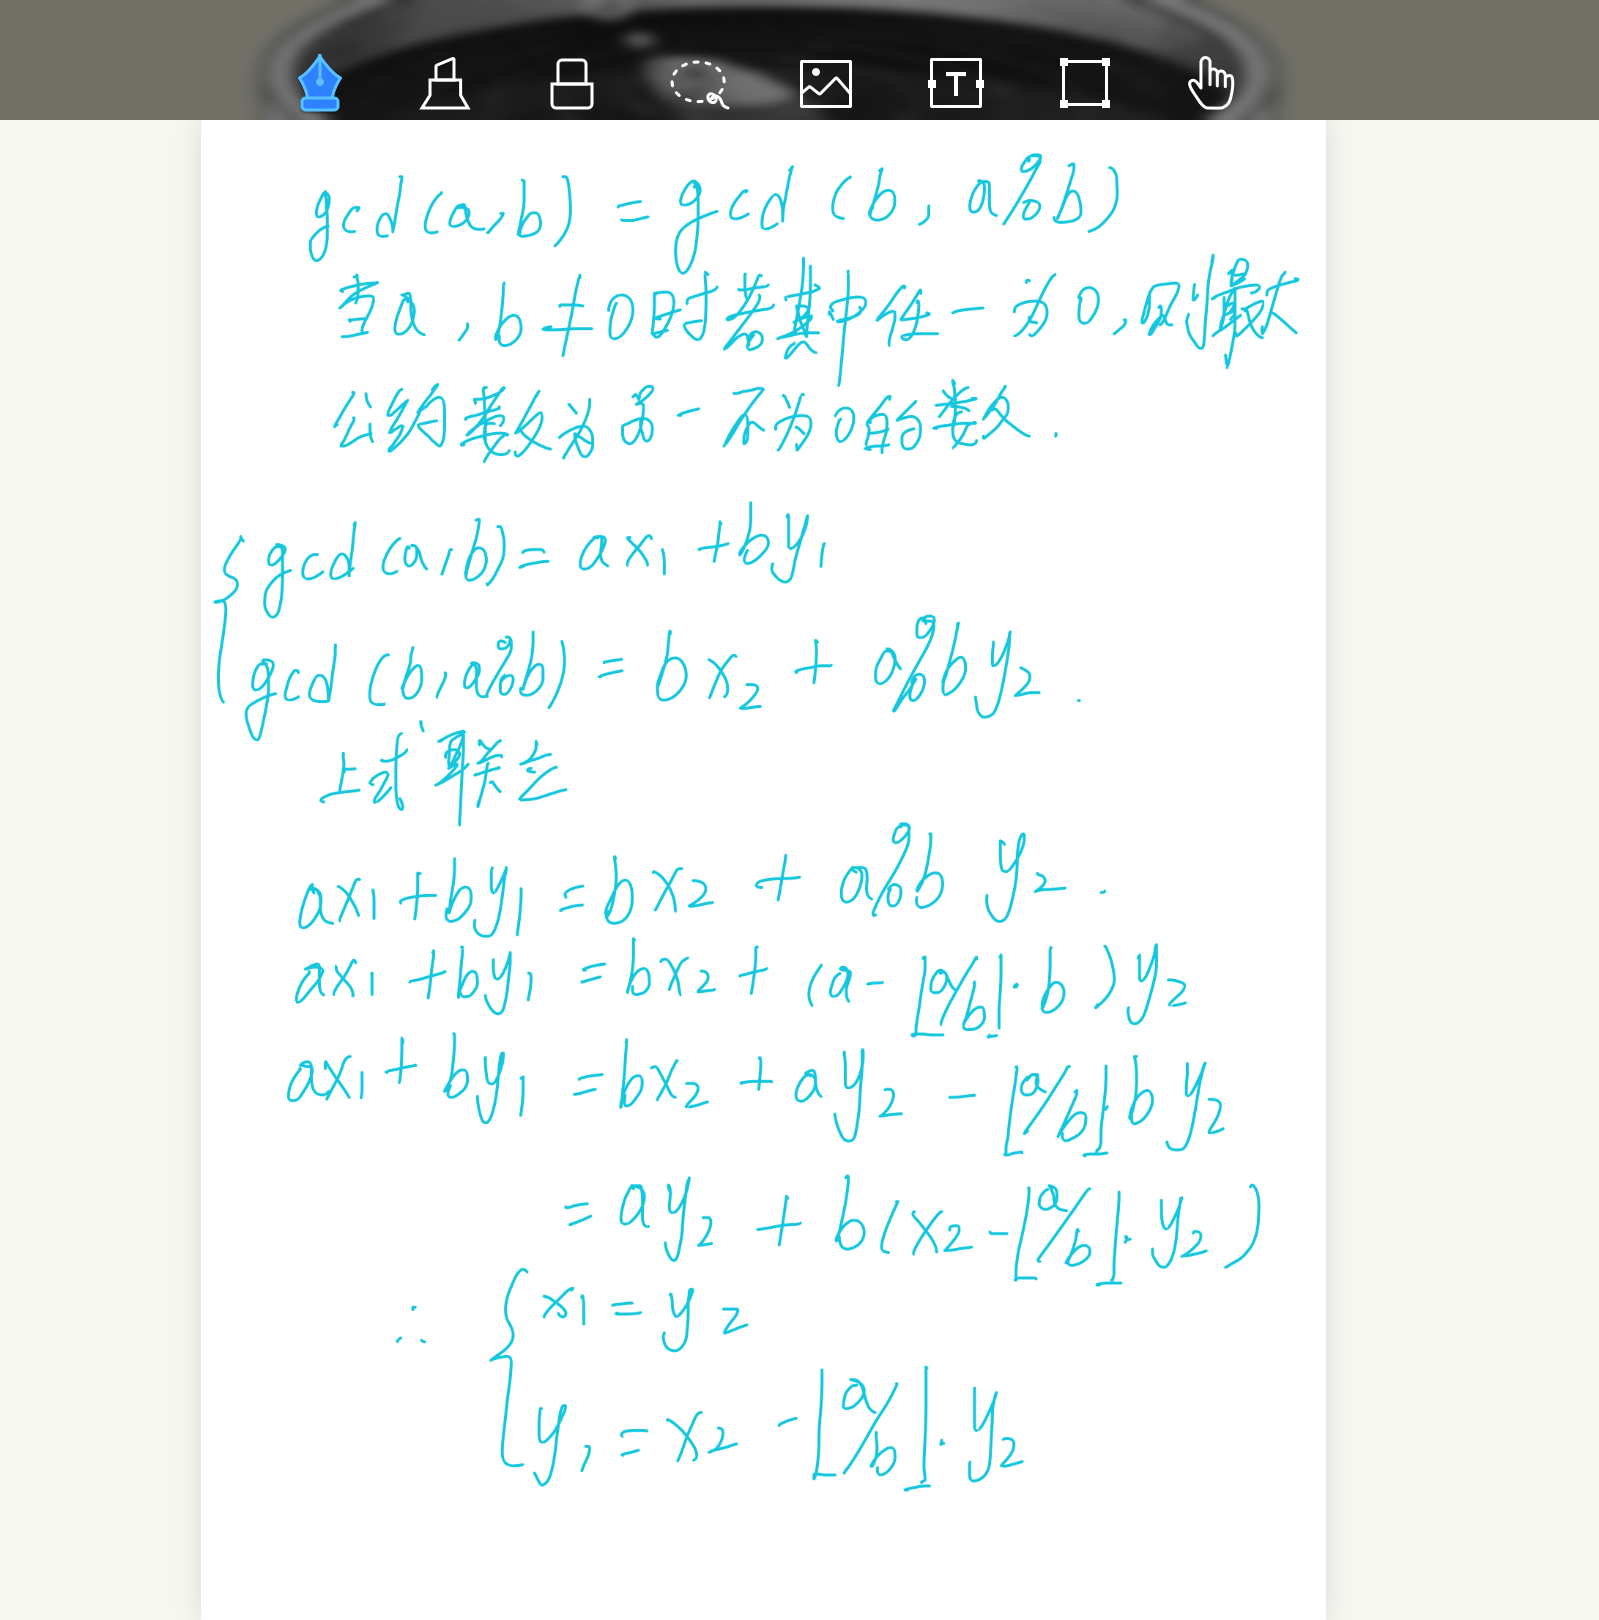 T
gcd(a,b) = gcd(b, a%b)
当a,b≠0时若其中任一为0,则最大
公约数为另一不为0的数.
gcd(a,b)= ax₁+by₁
gcd(b,a%b) = bx₂ + a%by₂.
上式联立
ax₁+by₁ =bx₂ + a%b y₂.
ax₁+by₁ =bx₂+ (a-⌊a/b⌋·b)y₂
ax₁+by₁ =bx₂ +ay₂ -⌊a/b⌋·by₂
= ay₂ + b(x₂-⌊a/b⌋·y₂)
∴ { x₁ = y₂
y₁ = x₂ -⌊a/b⌋·y₂